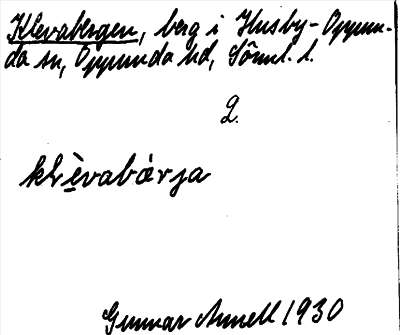 Klevabergen, berg i Husby-Oppun-
da sn, Oppunda hd, Söml. l.
2.
klèvabárja
Gunnar Annell 1930